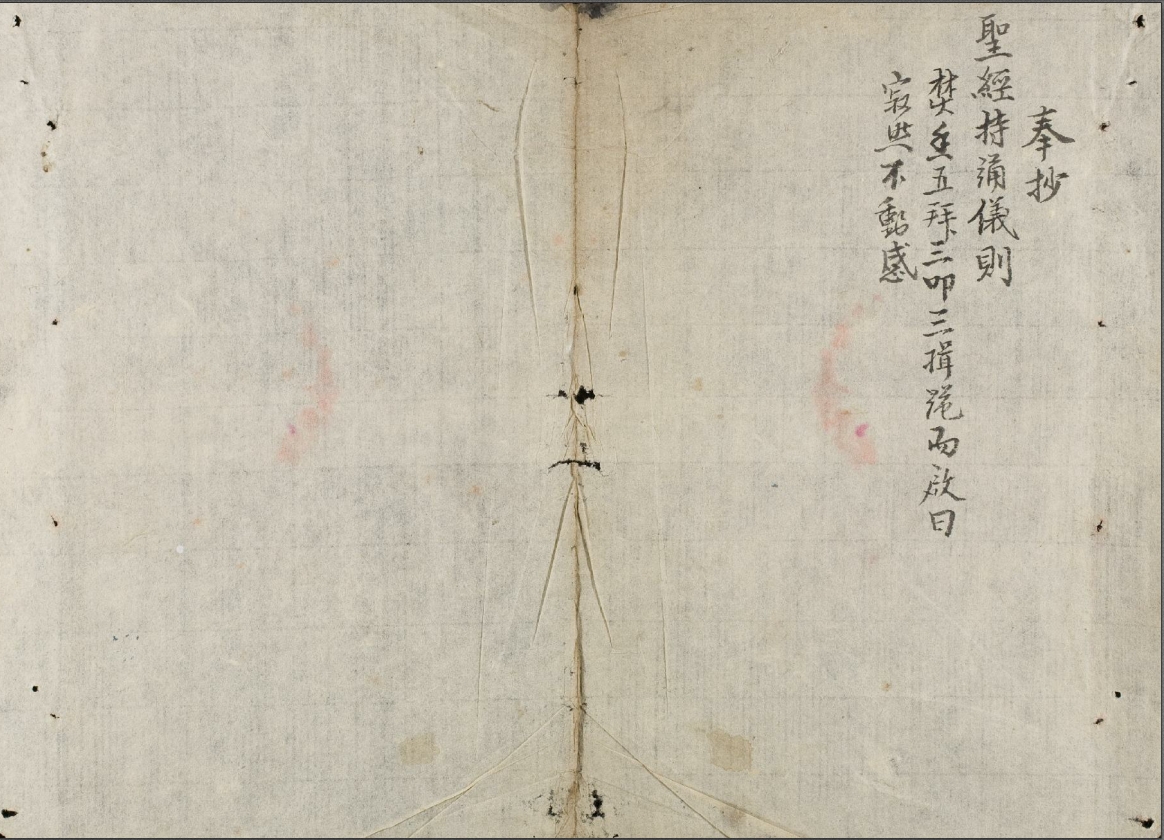 奉抄
聖經持誦儀則
焚香五拜三叩三揖跪而啟曰
寂然不動感